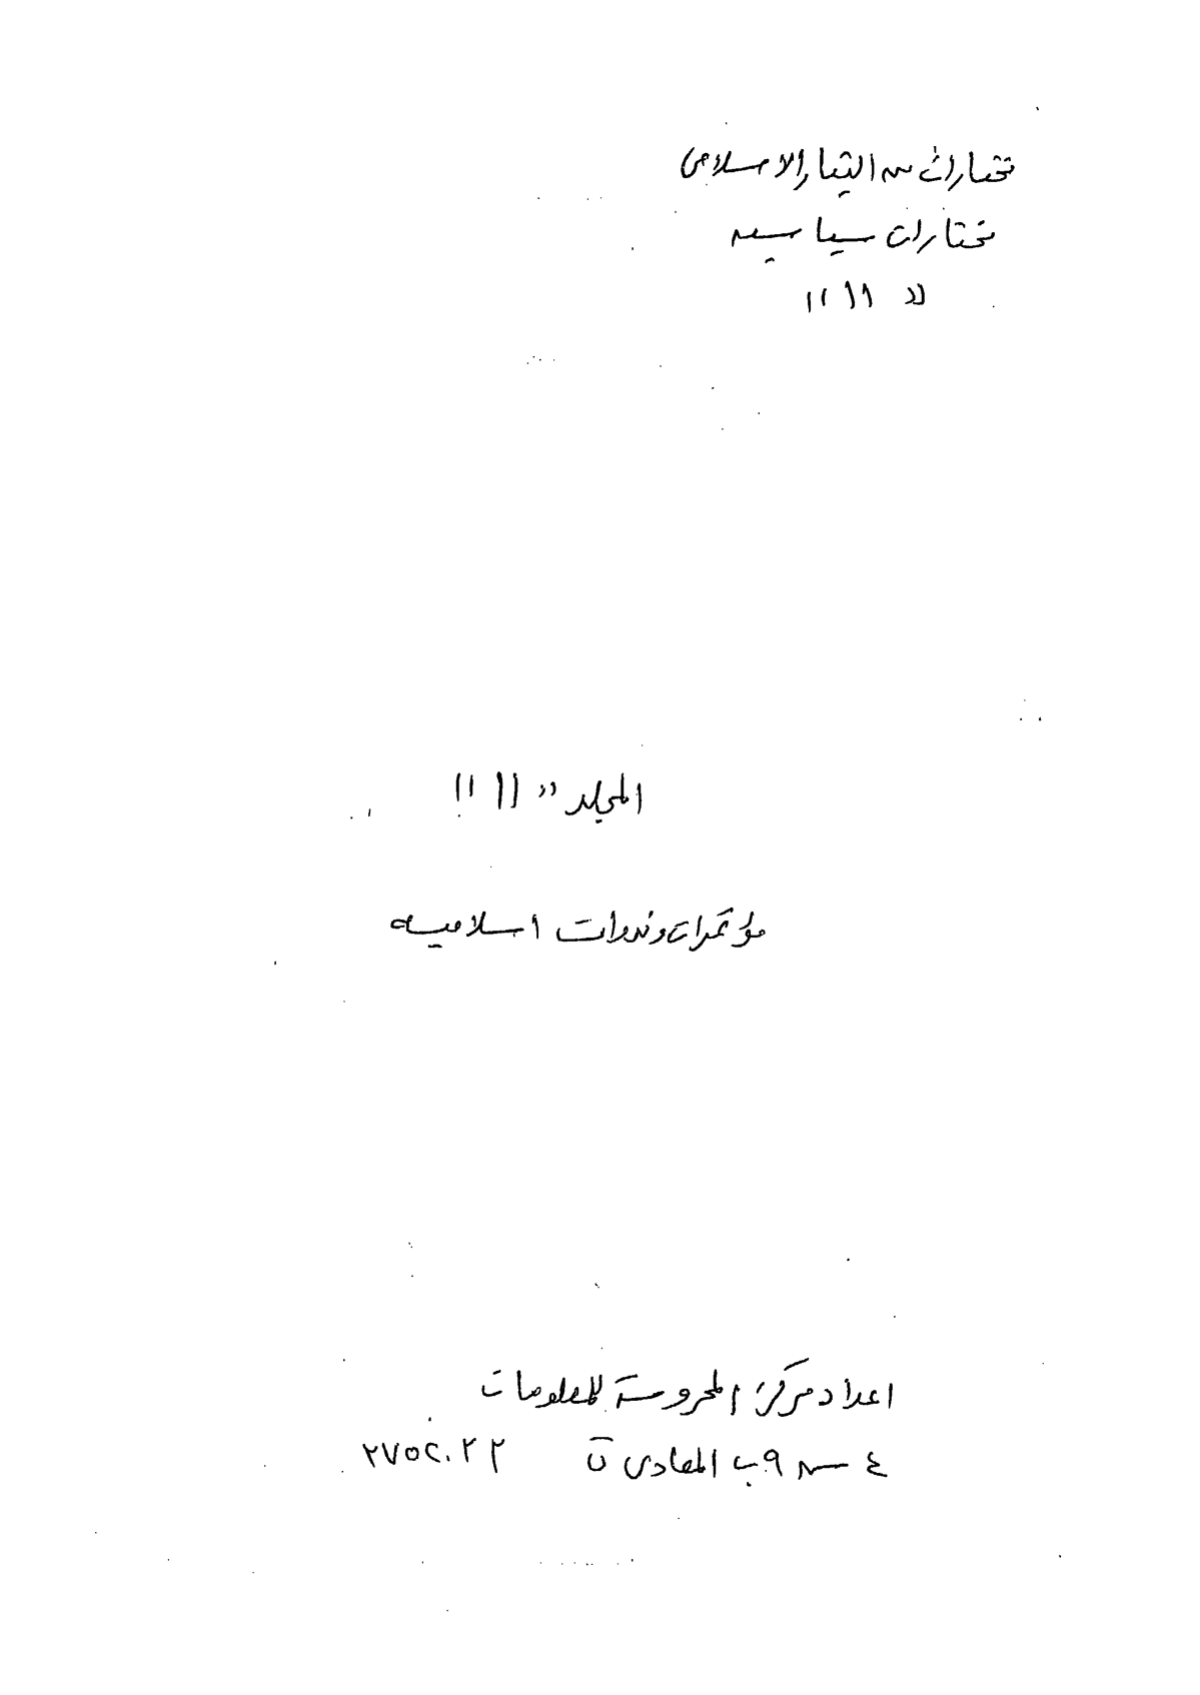 مختارات من التيار الاسلامى
مختارات سياسيه
" ١١ "
المجلد " ١١ "
مؤتمرات وندوات اسلاميه
اعداد مركز المحروسة للمعلومات
٤ ش ٩ب المعادى ت ٣٧٥٢٠٢٢